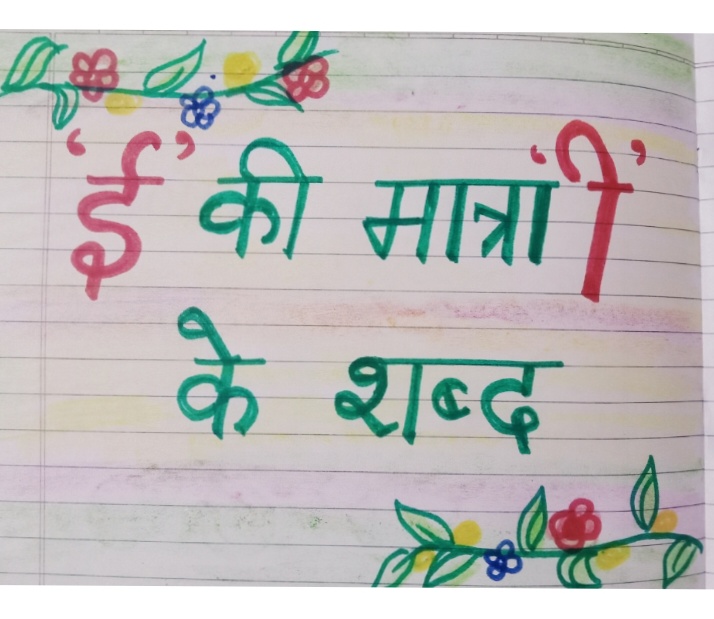 'ई' की मात्रा 'ी'
के शब्द